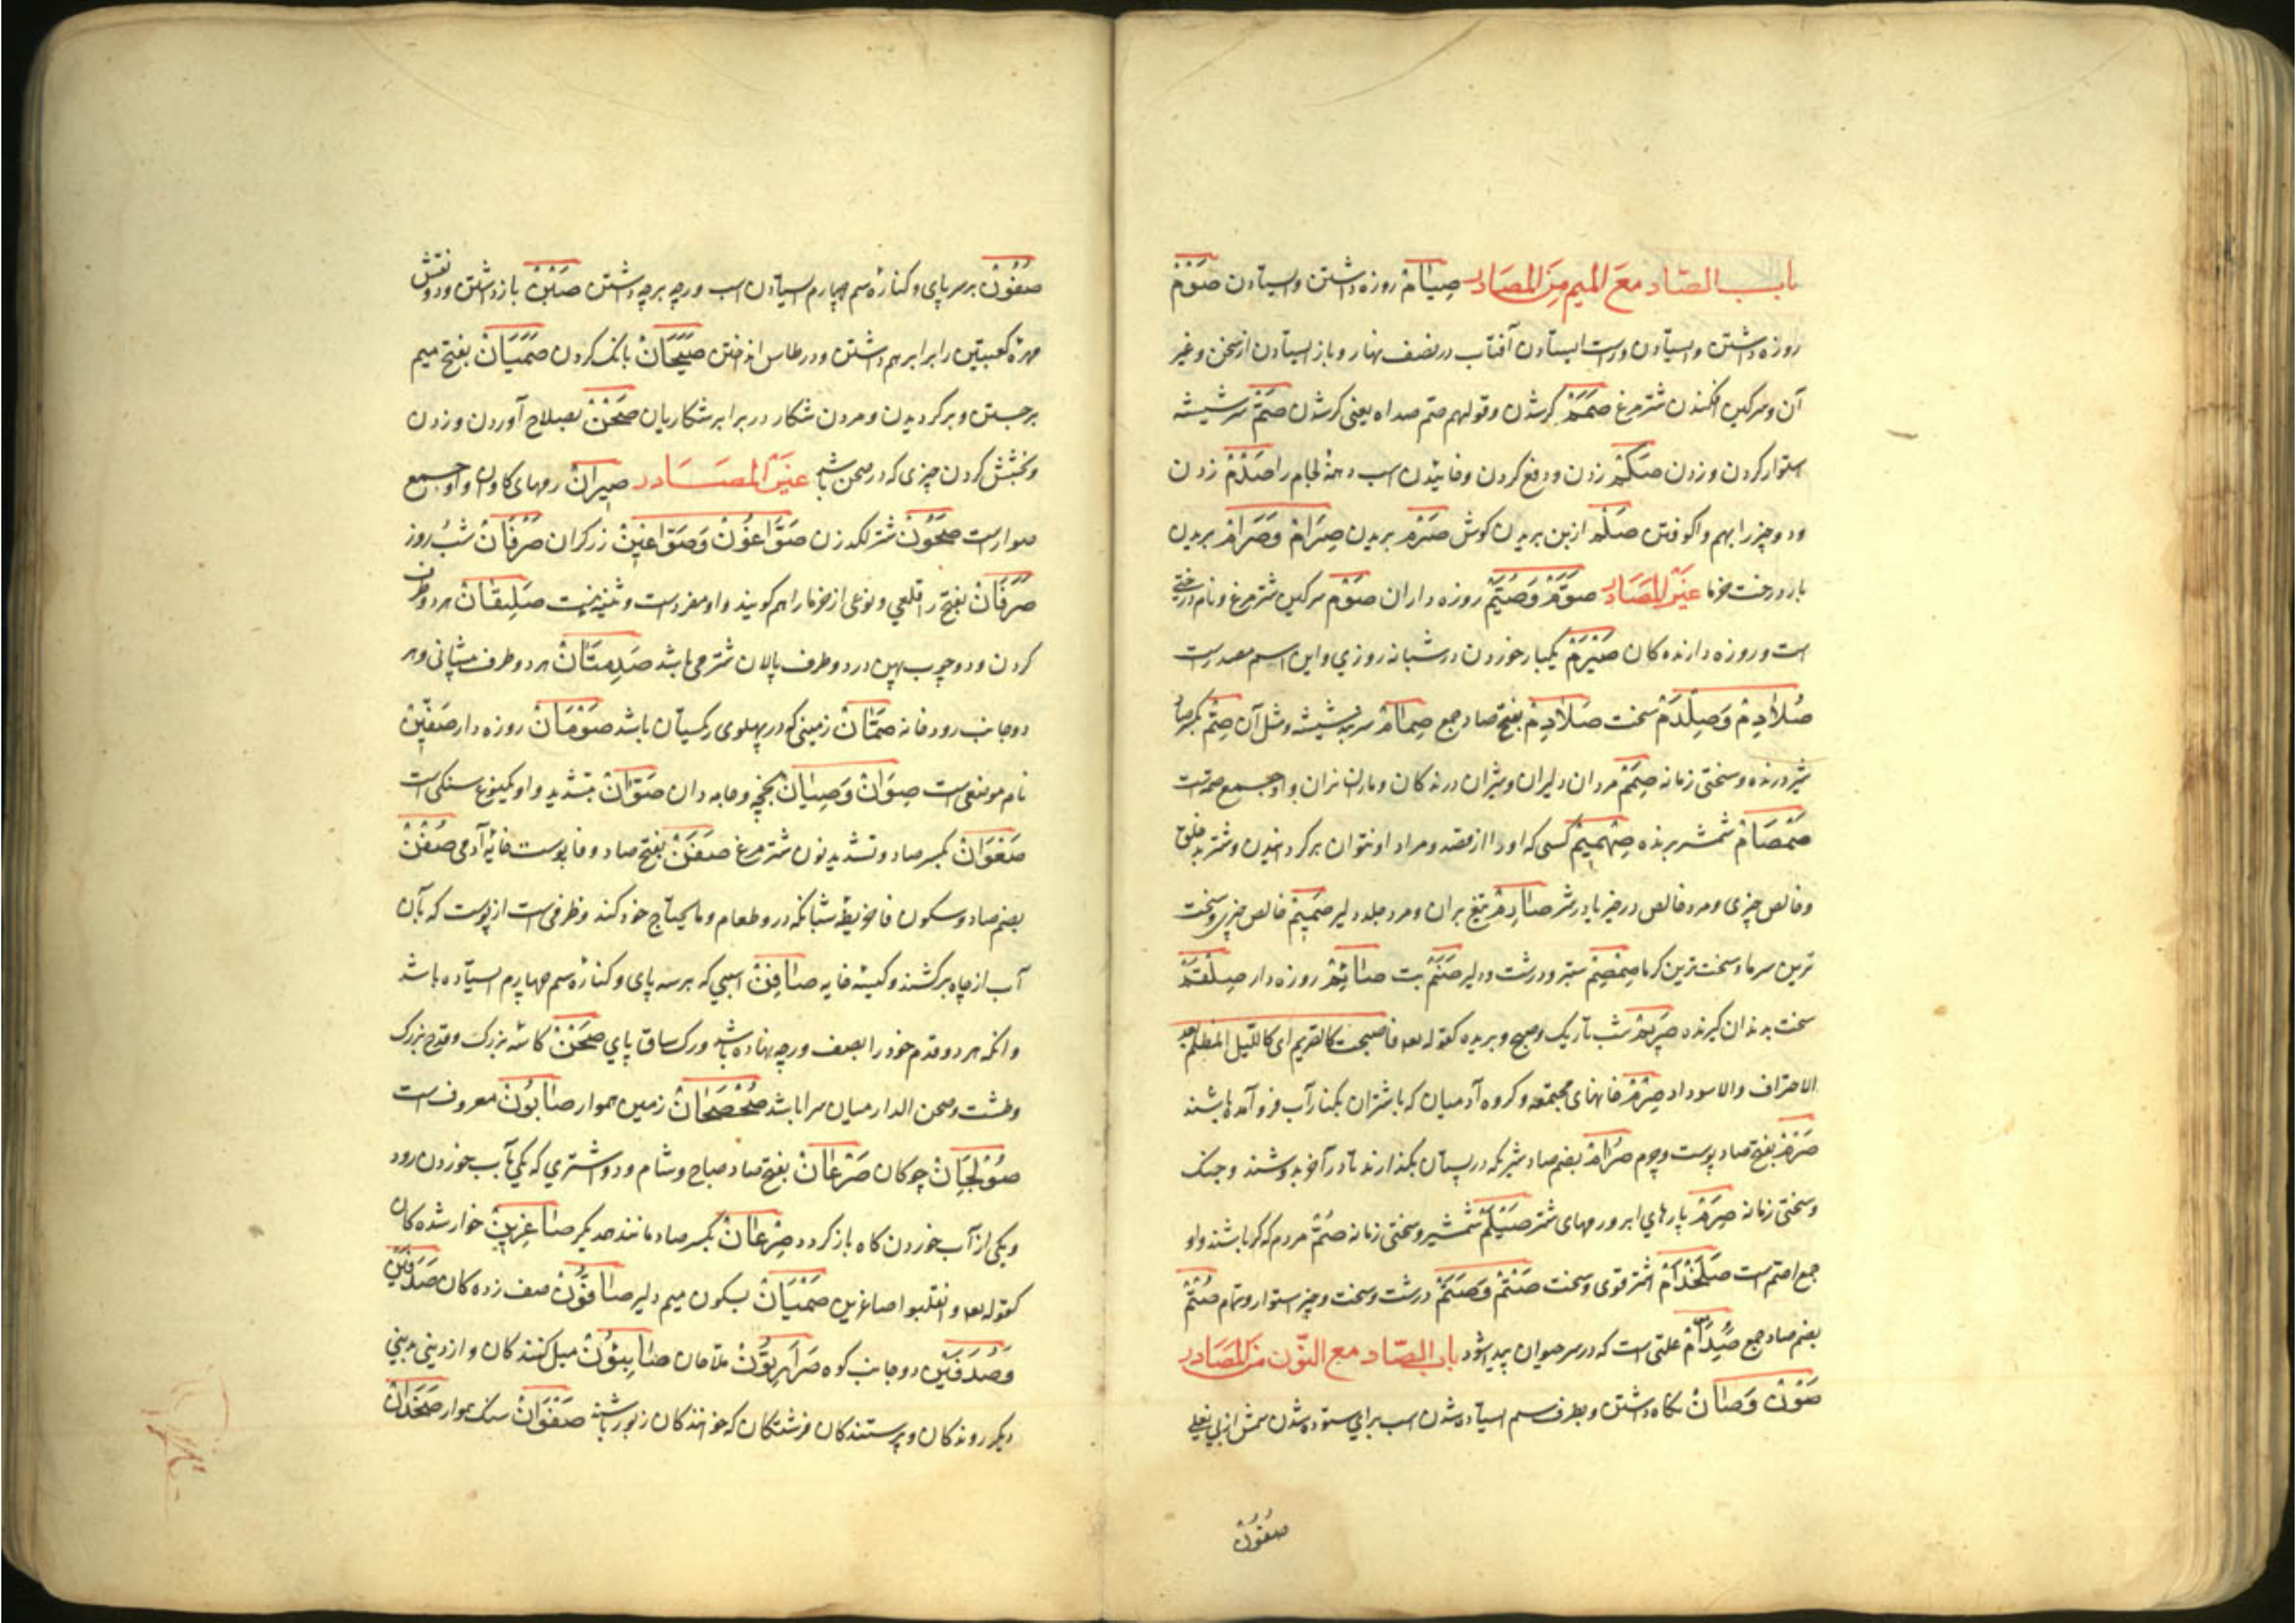 باب الصاد مع الميم من المصادر صِيَامْ روزه داشتن و ایستادن صَوْمْ
روزه داشتن و ایستادن و راست ایستادن آفتاب در نصف نهار و باز ایستادن از سخن و غیر
آن و سرکین افکندن شترمرغ صَمَمْ کر شدن و قولهم صم صداه یعنی کر شدن صَمّْ سر شیشه
استوار کردن و زدن صَکْمْ زدن و دفع کردن و خائیدن اسب دهنهٔ لجام را صَدْمْ زدن
و دو چیز را بهم واکوفتن صَلْمْ از بن بریدن کوش صَرْمْ بریدن صِرَامْ وَصَرَامْ بریدن
بار درخت خرما غير المصادر صُوَّمْ وَصُيَّمْ روزه داران صَوْمْ سرکین شترمرغ و نام درختی
است و روزه دارنده کان صَيْرَمْ یکبار خوردن در شبانه روزی و این اسم مصدرست
صُلَادِمْ وَصِلْدَمْ سخت صَلَادِمْ بفتح صاد جمع صِمَامْ سربند شیشه و مثل آن صِمّْ بکسر صاد
شیر درنده و سختی زمانه صِمَمْ مردان دلیران و شیران درندکان و ماران نران و او جمع صمّتست
صَمْصَامْ شمشیر برنده صِهْمِيمْ کسی که او را از قصد و مراد او نتوان برکردانیدن و شتر بدخلق
و خالص چیزی و مرد خالص در خیر یا در شر صَارِمْ تیغ بران و مرد جلد دلیر صَمِيمْ خالص چیزی و سخت
ترین سرما و سخت ترین کرما صِمْصِمْ ستبر و درشت و دلیر صَنَمْ بت صَائِمْ روزه دار صِلْقَمْ
سخت بدندان کیرنده صَرِيمْ شب تاریک و صبح و بریده کقوله تعه فاصبحت کالصریم ای کاللیل المظلم
الاحتراف والاسوداد صِرْمْ خانهای مجتمعه و کروه آدمیان که با شتران بکنار آب فرو آمده باشند
صَرْمْ بفتح صاد پوست و چرم صُرَامْ بضم صاد شیر که در پستان بکذارند تا در آخر بدوشند و جنک
و سختی زمانه صِرَمْ پارهای ابر و رمهای شتر صَيْلَمْ شمشیر و سختی زمانه صُمّْ مردم که کر باشند و او
جمع اصم است صَلَخْدَمْ اشتر قوی و سخت صَتْمْ وَصَتَمْ درشت و سخت و چیز استوار و تمام صُتْمْ
بضم صاد جمع صُدَامْ علتی است که در سر حیوان پیدا شود باب الصاد مع النون من المصادر
صَوْنْ وَصَانْ نکاه داشتن و بطرف سم ایستاده شدن اسب برای ستوده شدن سمش از بی نعلی
صُفُونْ
صُفُونْ بر سر پای و کنارهٔ سم چهارم ایستادن اسب و رچه برچه داشتن صَبْنْ باز داشتن و دو نقش
مهرهٔ کعبتین را برابر هم داشتن و در طاس انداختن صَيَحَانْ بانک کردن صَمَيَانْ بفتح میم
برجستن و برکردیدن و مردن شکار در برابر شکاریان صَحْنْ بصلاح آوردن و زدن
و بخشش کردن چیزی که در صحن باشد غير المصادر صِيرَانْ رمهای کاوان و او جمع
صوارست صَحُونْ شتر لکدزن صَوَّاغُونْ وَصَوَّاغِينْ زرکران صَرْفَانْ شب و روز
صَرَفَانْ بفتح را قلعی و نوعی از خرما را هم کویند و او مفردست و تثنیه نیست صَلِيقَانْ هر دو طرف
کردن و دو چوب پهن در دو طرف پالان شتر می باشد صَدِمَتَانْ هر دو طرف پیشانی و هر
دو جانب رودخانه صَمَّانْ زمینی که در پهلوی ریکستان باشد صَوْمَانْ روزه دار صِفِّينْ
نام موضعی است صِوَانْ وَصِيَانْ بخچه و جامه دان صَوَّانْ بتشدید واو یکنوع سنکی است
صَعْوَانْ بکسر صاد و تشدید نون شترمرغ صَفَنْ بفتح صاد و فا پوست خایهٔ آدمی صُفْنْ
بضم صاد و سکون فا خریطهٔ شبانکه در و طعام و مایحتاج خود کند و ظرفی است از پوست که بآن
آب از چاه برکشند و کیسهٔ خایه صَافِنْ اسبی که بر سه پای و کنارهٔ سم چهارم ایستاده باشد
و انکه هر دو قدم خود را بصف و رچه نهاده باشد و رک ساق پای صَحْنْ کاسهٔ بزرک و قدح بزرک
و طشت و صحن الدار میان سرا باشد صُحْصَحَانْ زمین هموار صَابُونْ معروف است
صَوْلَجَانْ چوکان صَرْعَانْ بفتح صاد صباح و شام و دو شتری که یکی بآب خوردن رود
و یکی از آب خوردن کاه باز کردد صِرْعَانْ بکسر صاد مانند همدیکر صَاغِرِينْ خوار شده کان
کقوله تعه وانقلبوا صاغرین صَمْيَانْ بسکون میم دلیر صَافُّونْ صف زده کان صَدَفَيْنِ
وَصُدَفَيْنِ دو جانب کوه صَرَارِيُّونْ ملاحان صَابِئُونْ میل کنندکان و از دینی بدینی
دیکر روندکان و پرستندکان فرشتکان که خوانندکان زبور باشند صَفْوَانْ سنک هموار صَخَدَانْ